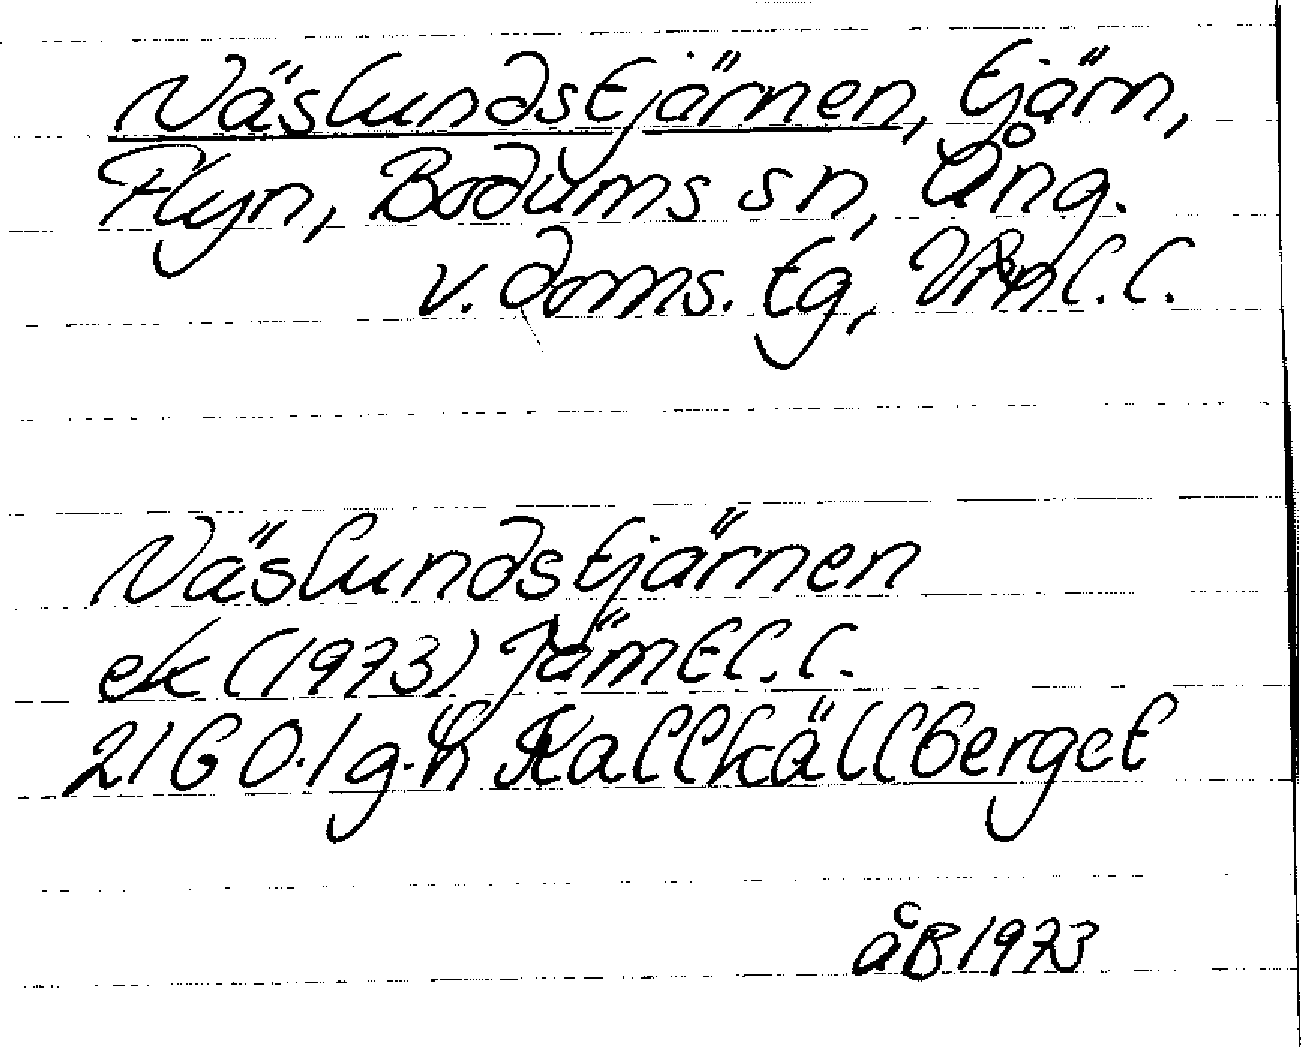 Näslundstjärnen, tjärn,
Flyn, Bodums sn, Ång.
v. doms. tg, Vrnl. l.
Näslundstjärnen
ek (1973) Jämtl. l.
21G 0-1 g-h Kallkällberget
åB 1973